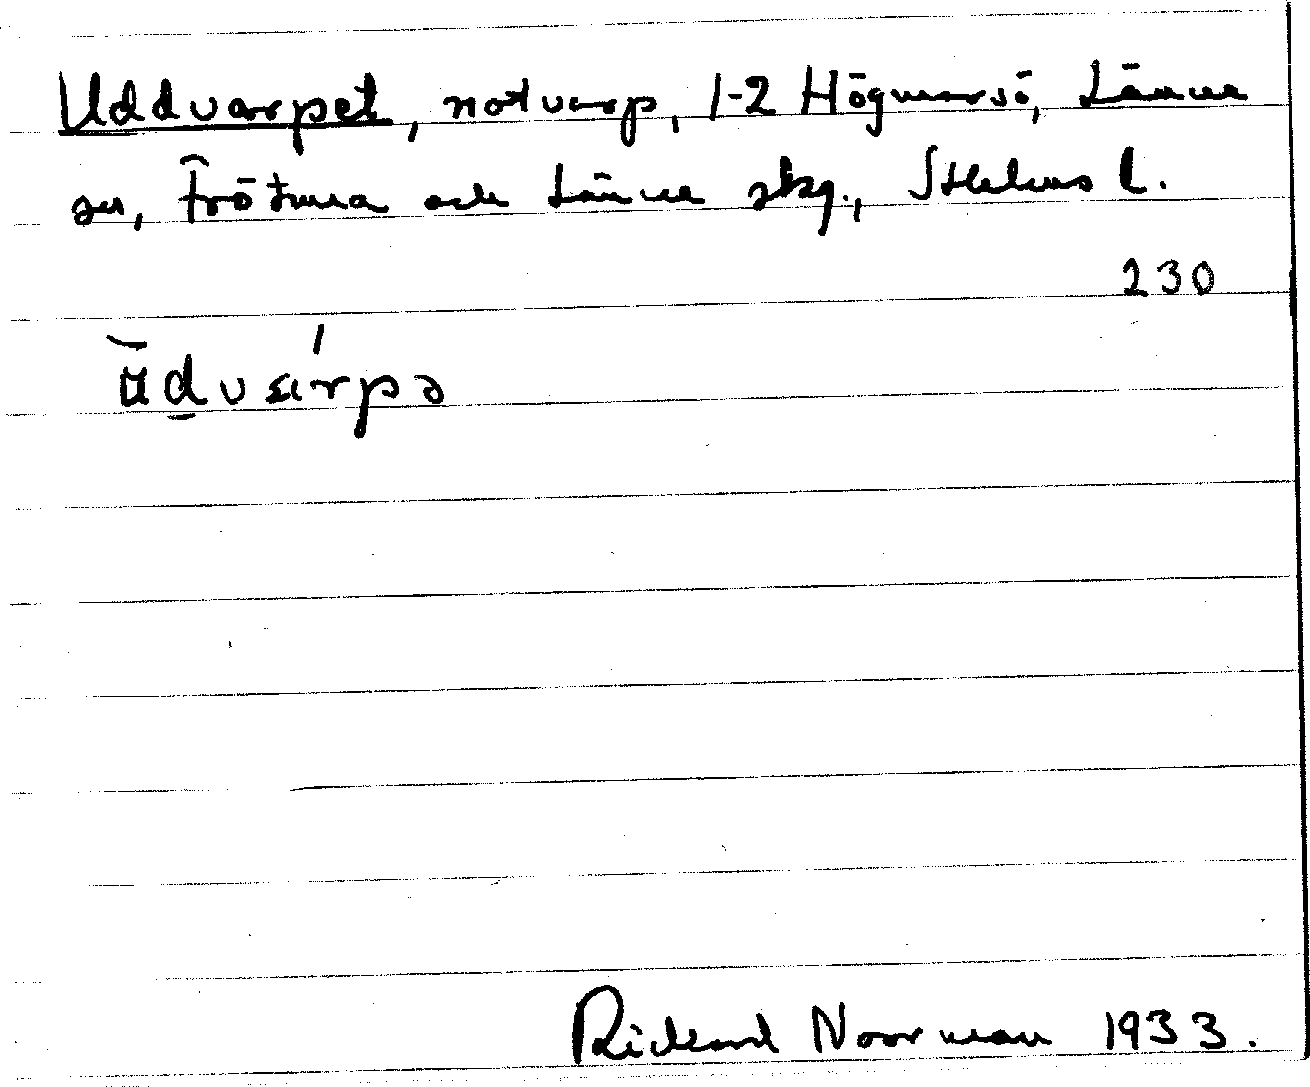 Uddvarpet, notvarp, 1-2 Högmarsö, Länna
sn, Frötuna och Länna skg., Sthlms l.
230
ŭdvar'pə
Rickard Noorman 1933.